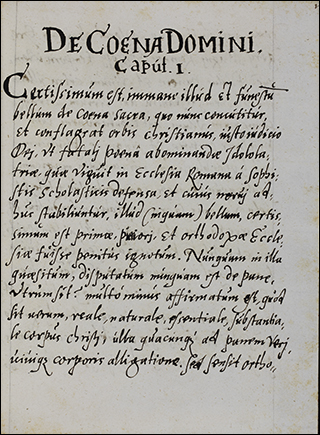 DE COENA DOMINI.
Caput. I.
Certissimum est, immane illud et funestũ
bellum de coena sacra, quo nunc concutitur,
et conflagrat orbis christianus, iusto iudicio
Dei, ut
poena abominandæ Idolola-
triæ quæ viguit in Ecclesia Romana a sophi-
stis scholasticis defensa, et cuius ad-
huc stabiliuntur, illud (inquam) bellum, certis-
simum est primæ, et orthodoxæ Eccle-
siæ fuisse penitus ignotum. Nunquam in illa
quæsitum, disputatum nunquam est de pane,
utrum sit: multo minus affirmatum est, quod
sit uerum, reale, naturale, essentiale, substantia-
le corpus christi, illa quacunq ad panem
corporis alligatione. Sed sensit ortho-